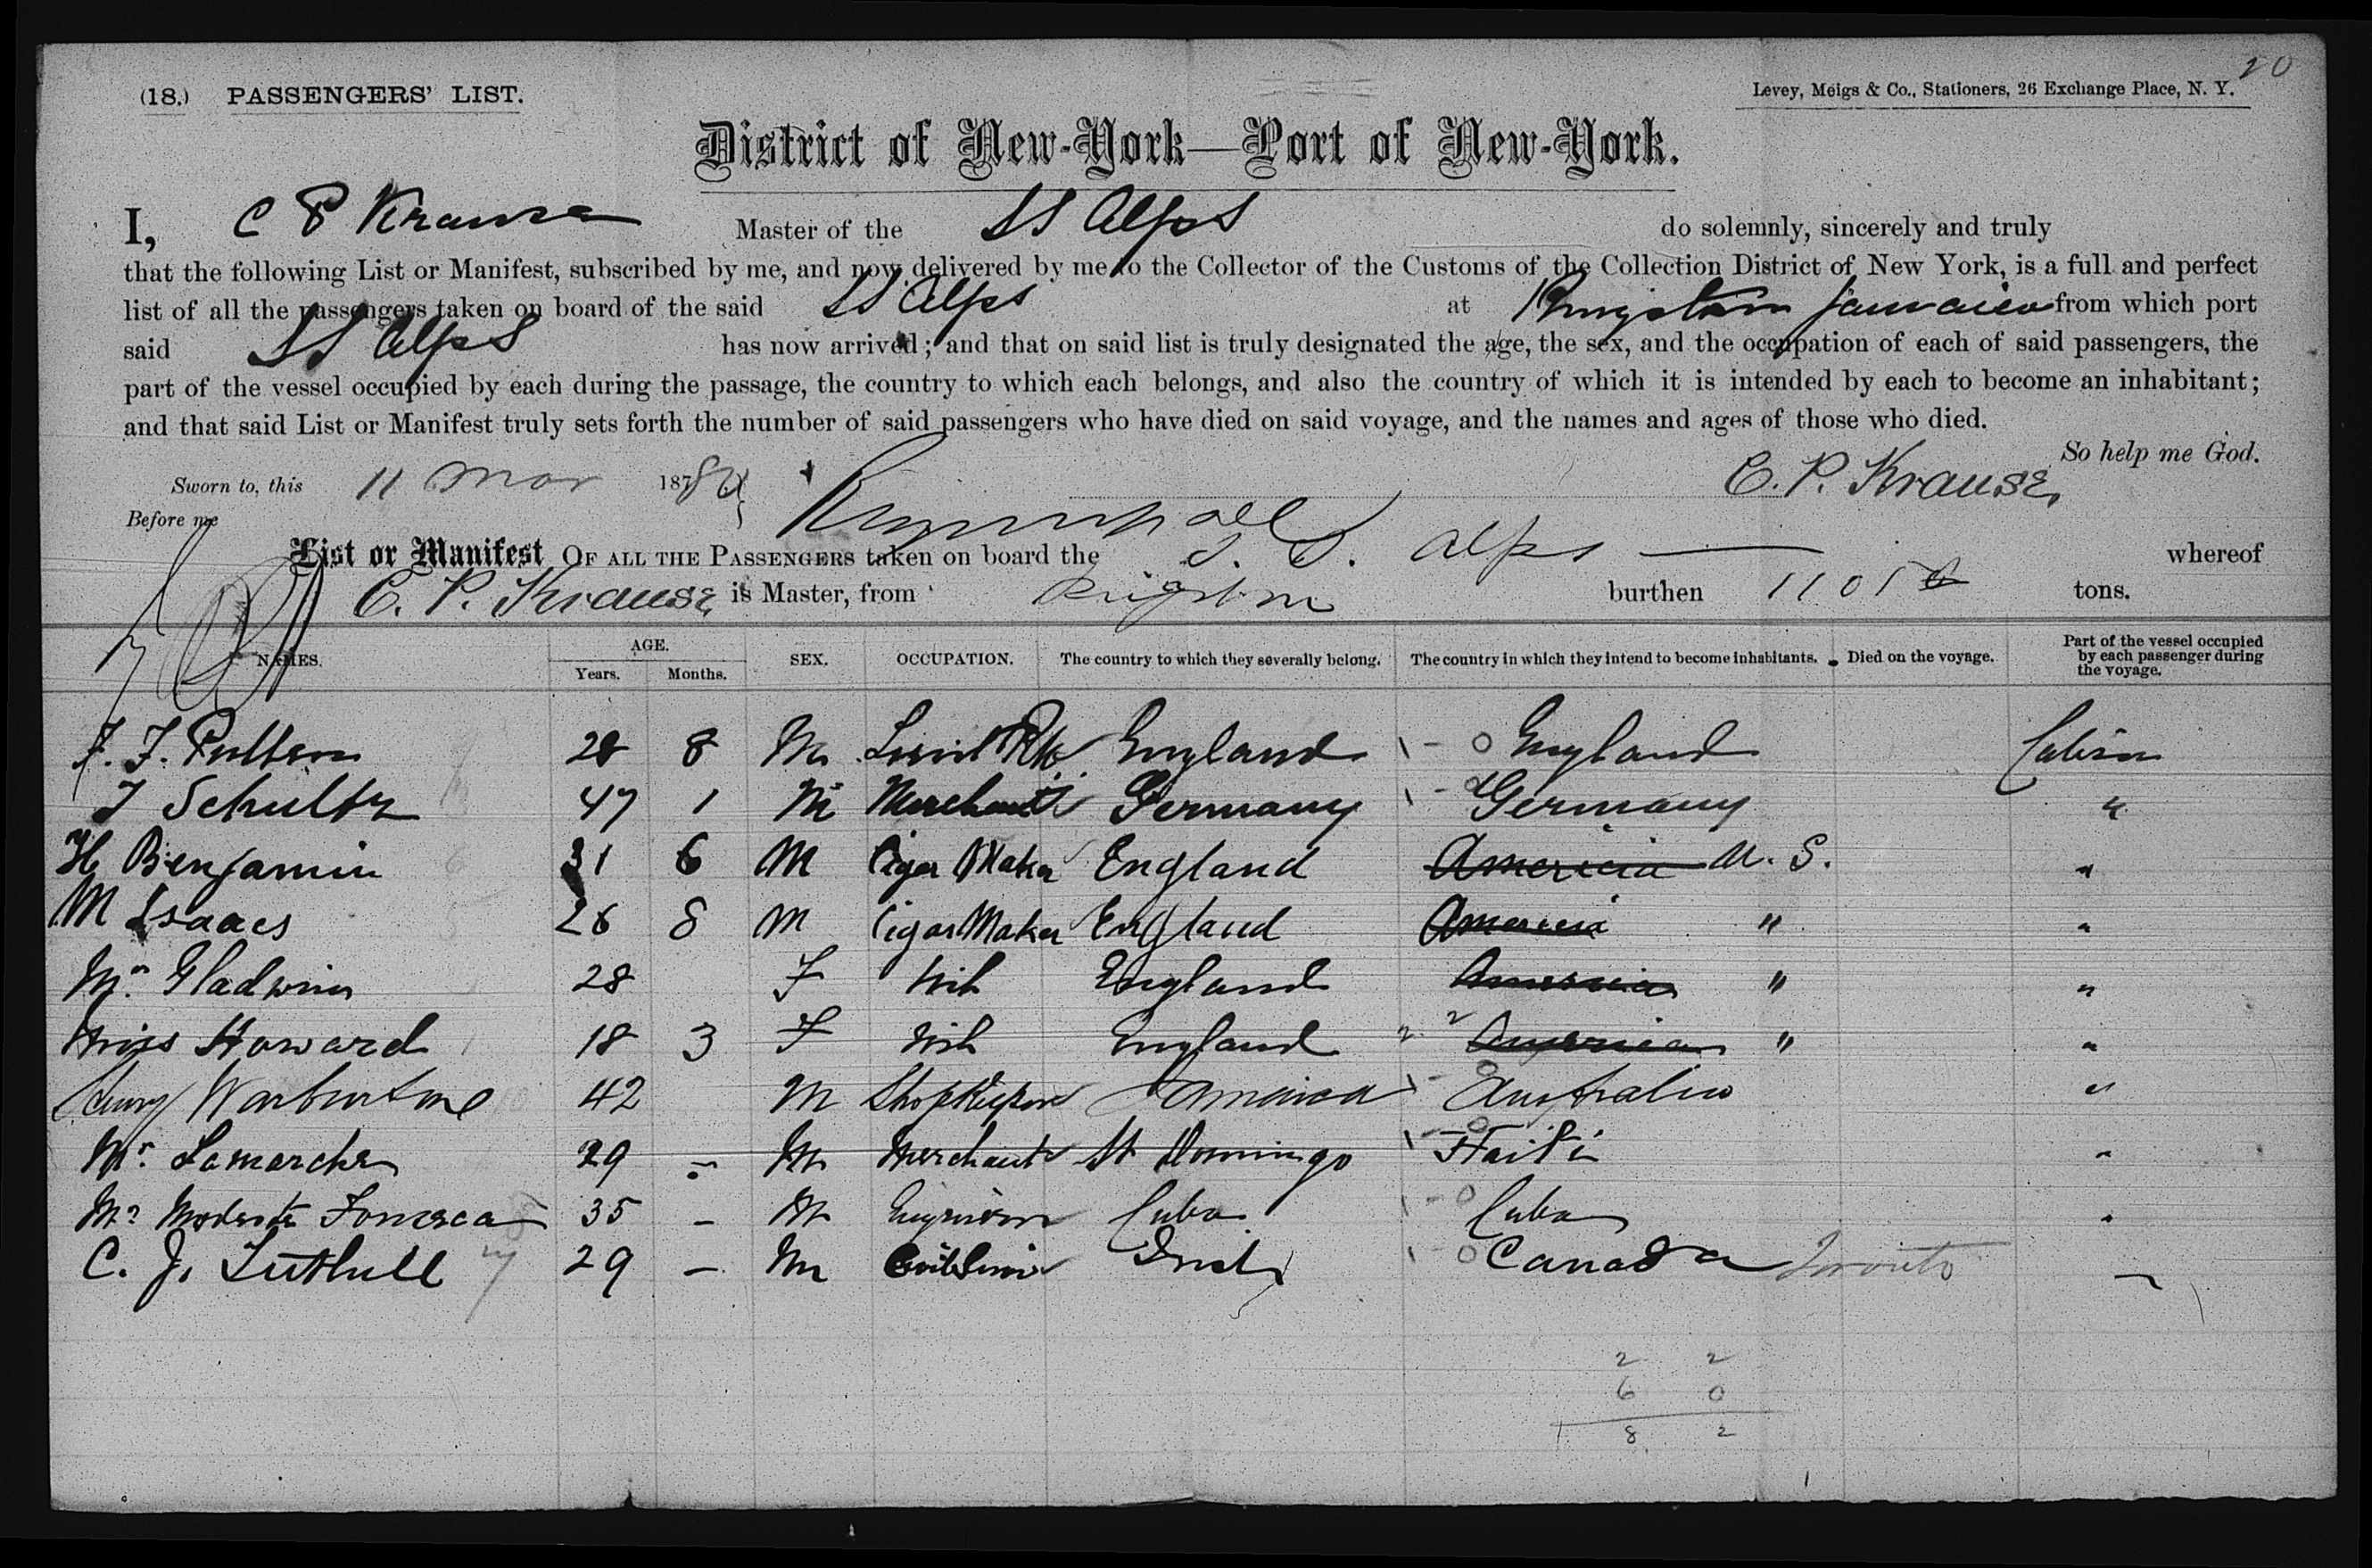 20
(18.) PASSENGERS' LIST. Levey, Meigs & Co., Stationers, 26 Exchange Place, N. Y.
District of New-York—Port of New-York.
I, C P Krause Master of the SS Alps do solemnly, sincerely and truly
that the following List or Manifest, subscribed by me, and now delivered by me to the Collector of the Customs of the Collection District of New York, is a full and perfect
list of all the passengers taken on board of the said SS Alps at Kingston Jamaica from which port
said SS Alps has now arrived; and that on said list is truly designated the age, the sex, and the occupation of each of said passengers, the
part of the vessel occupied by each during the passage, the country to which each belongs, and also the country of which it is intended by each to become an inhabitant;
and that said List or Manifest truly sets forth the number of said passengers who have died on said voyage, and the names and ages of those who died.
So help me God.
Sworn to, this 11 Mar 187 C. P. Krause
Before me
List or Manifest OF ALL THE PASSENGERS taken on board the S. S. Alps whereof
C. P. Krause is Master, from Kingston burthen 1105 tons.
NAMES. AGE. Years. Months. SEX. OCCUPATION. The country to which they severally belong. The country in which they intend to become inhabitants. Died on the voyage. Part of the vessel occupied by each passenger during the voyage.
28 8 M England England Cabin
Schultz 47 1 M Merchant Germany Germany "
H Benjamin 31 6 M Cigar Maker England America U. S. "
M Isaacs 26 8 M Cigar Maker England America " "
Gladwin 28 F England America " "
Miss Howard 18 3 F England America " "
Henry 42 M Shopkeeper Jamaica Australia "
Mr. Lamarche 29 - M Merchant St Domingo Haiti "
Mr Modeste Fonseca 35 - M Cuba Cuba "
C. J. Tuthill 29 - M Canada Toronto
2 2
6 0
8 2